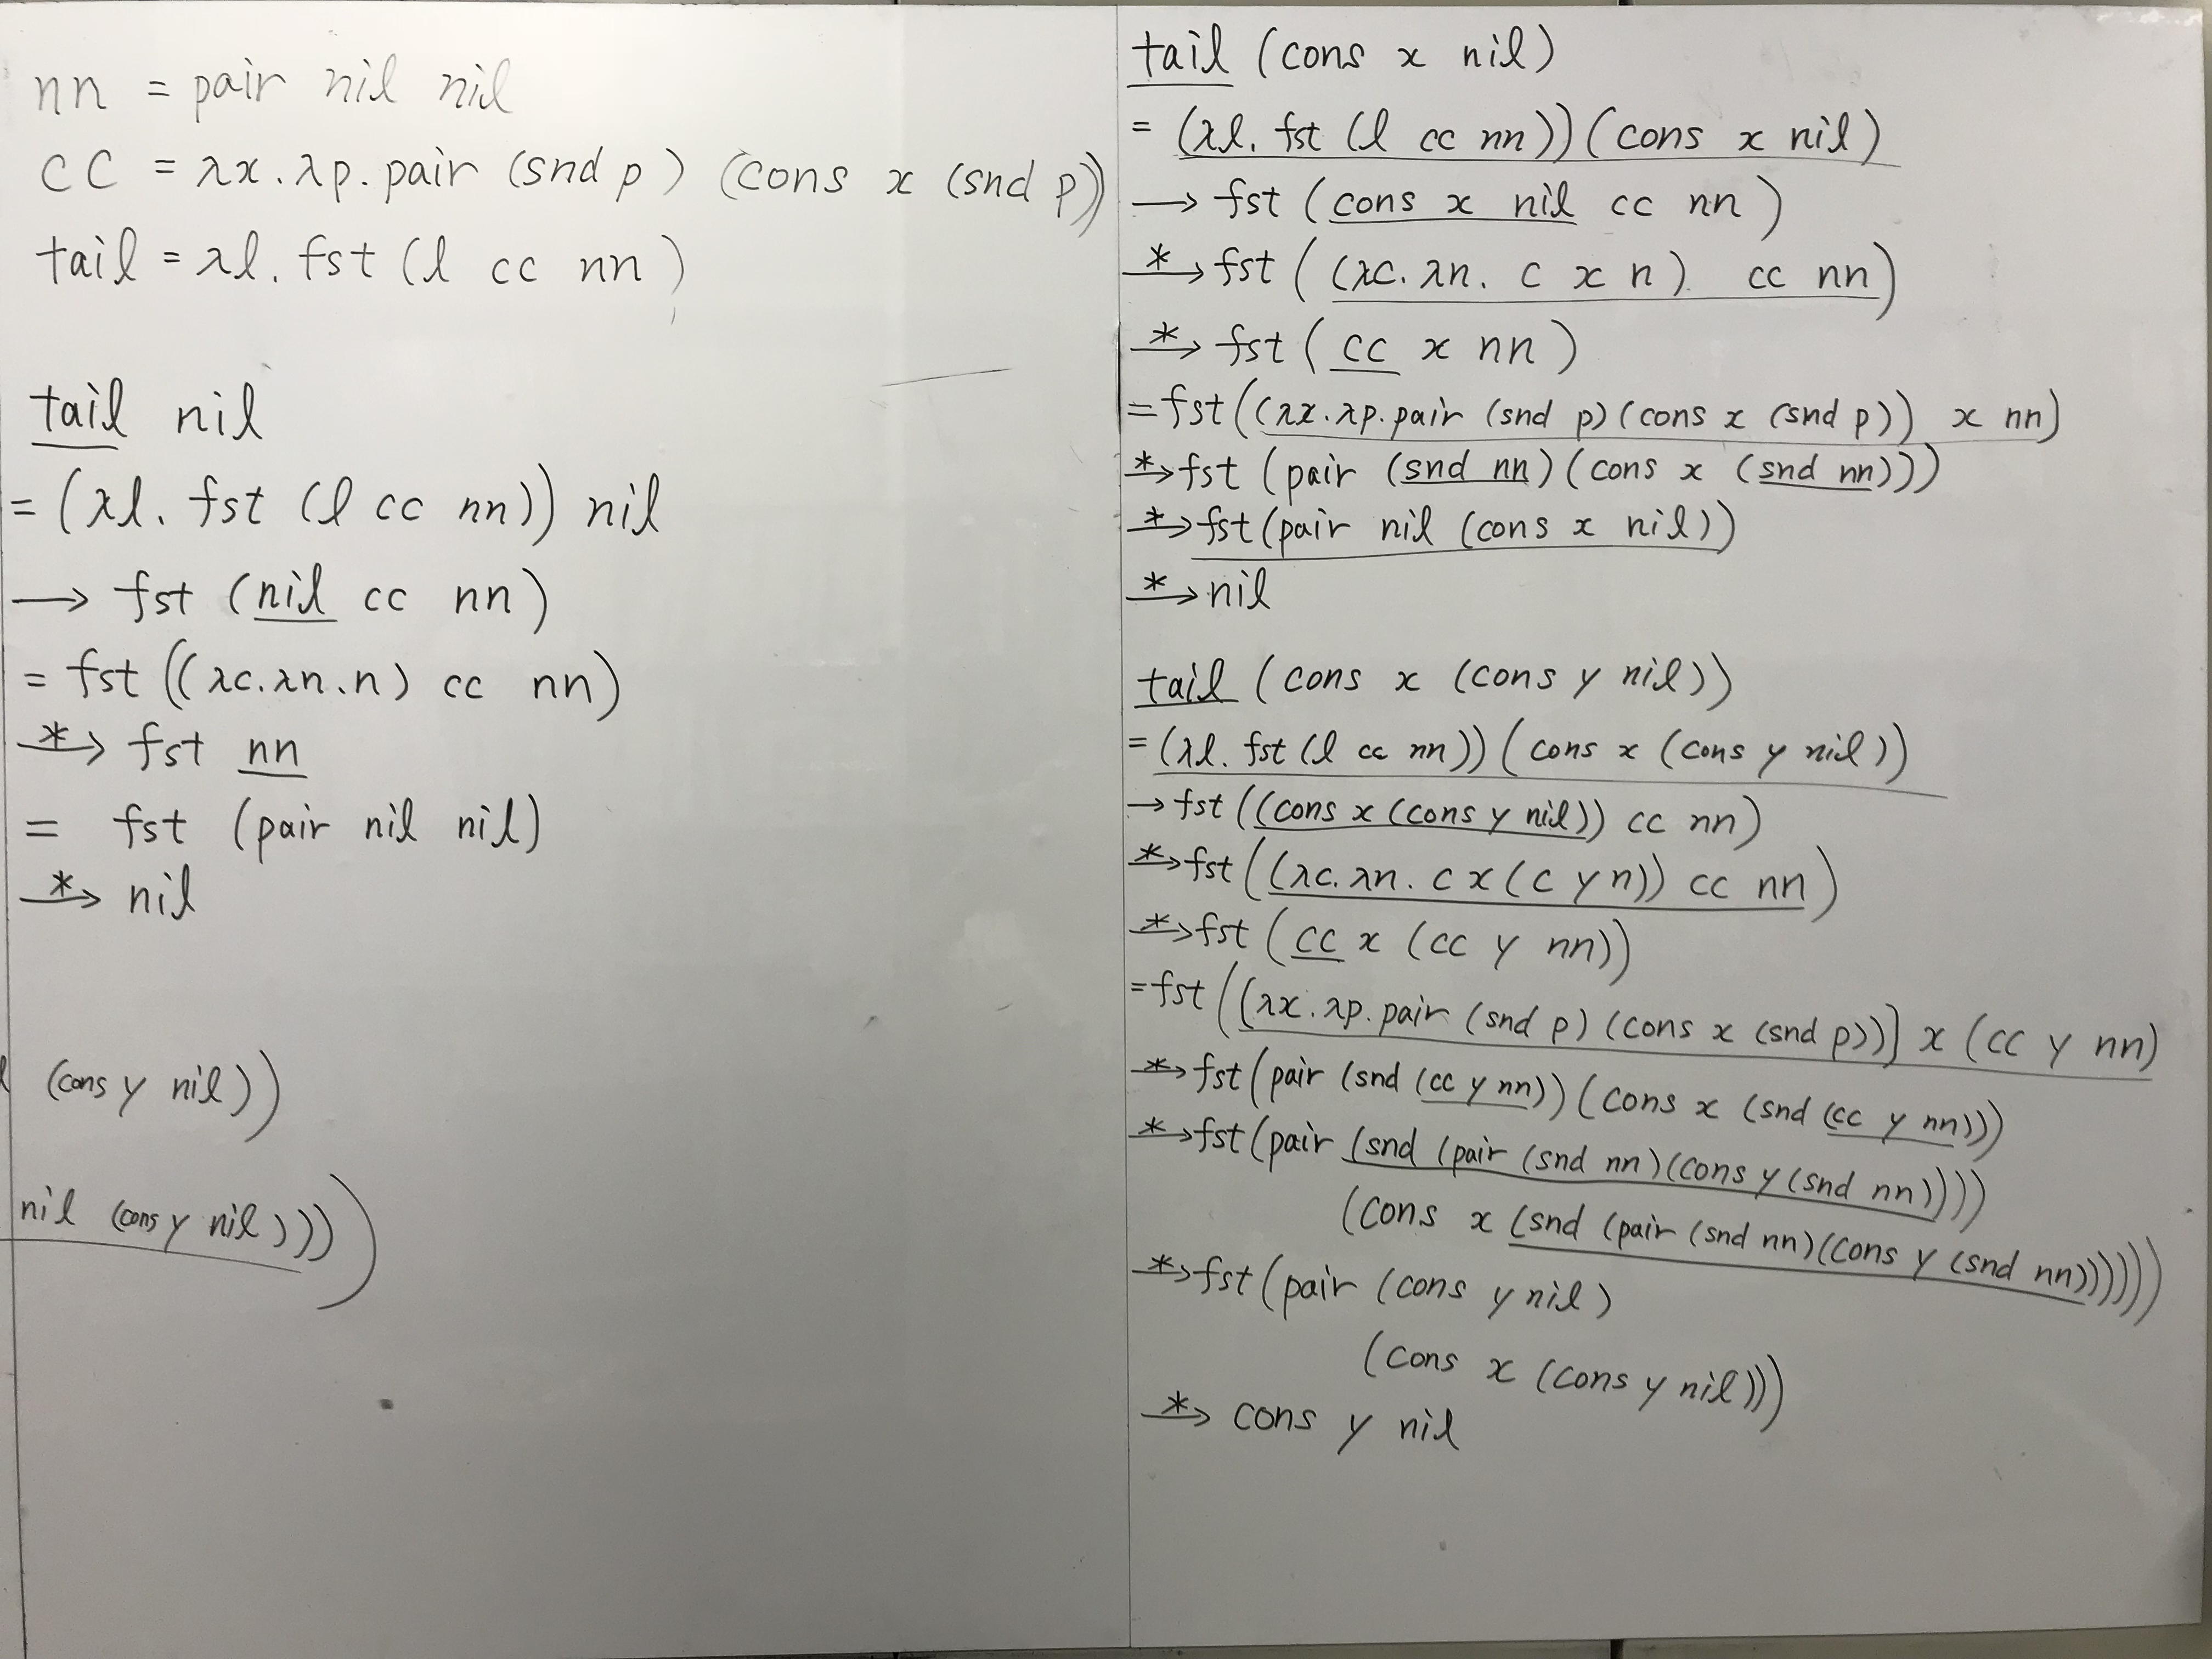 nn = pair nil nil
cc = λx.λp.pair (snd p) (cons x (snd p))
tail = λl. fst (l cc nn)
tail nil
= (λl. fst (l cc nn)) nil
→ fst (nil cc nn)
= fst ((λc.λn.n) cc nn)
*→ fst nn
= fst (pair nil nil)
*→ nil
(cons y nil))
nil (cons y nil)))
tail (cons x nil)
= (λl. fst (l cc nn)) (cons x nil)
→ fst (cons x nil cc nn)
*→ fst ((λc. λn. c x n) cc nn)
*→ fst (cc x nn)
= fst ((λx.λp.pair (snd p) (cons x (snd p)) x nn)
*→ fst (pair (snd nn) (cons x (snd nn)))
*→ fst (pair nil (cons x nil))
*→ nil
tail (cons x (cons y nil))
= (λl. fst (l cc nn)) (cons x (cons y nil))
→ fst ((cons x (cons y nil)) cc nn)
*→ fst ((λc. λn. c x (c y n)) cc nn)
*→ fst (cc x (cc y nn))
= fst ((λx.λp.pair (snd p) (cons x (snd p))) x (cc y nn)
*→ fst (pair (snd (cc y nn)) (cons x (snd (cc y nn)))
*→ fst (pair (snd (pair (snd nn) (cons y (snd nn))))
(cons x (snd (pair (snd nn) (cons y (snd nn))))))
*→ fst (pair (cons y nil)
(cons x (cons y nil)))
*→ cons y nil